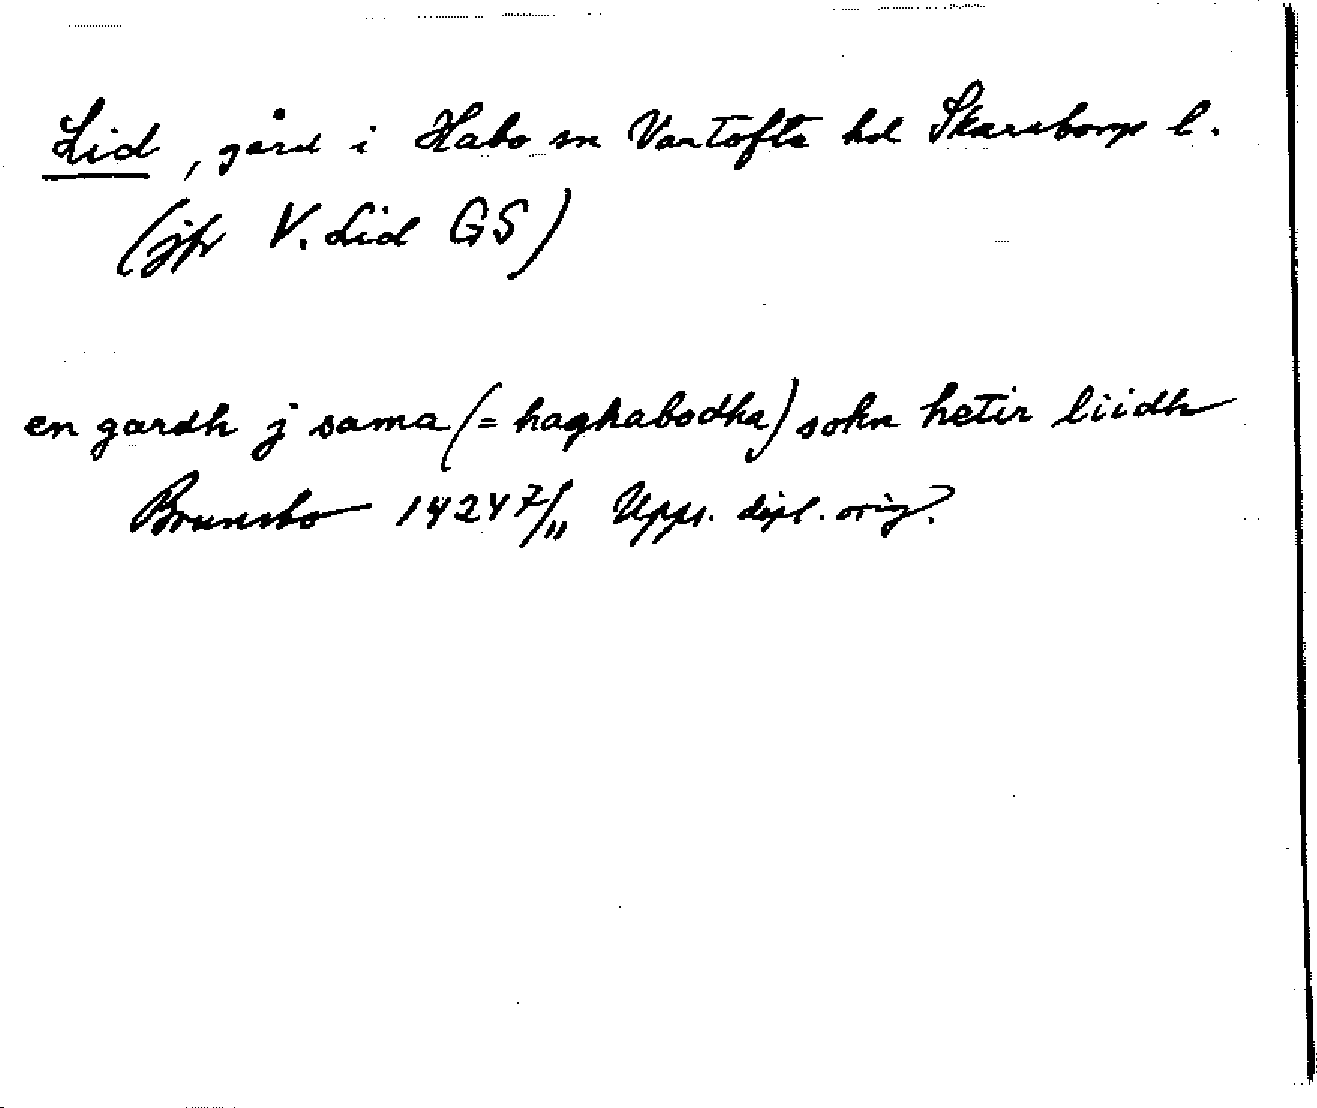 Lid, gård i Habo sn Vartofta hd Skaraborgs l.
(jfr V. Lid GS)
en gardh j sama (= haghabodha) sokn hetir liidh
Brunsbo 1424 7/11 Upps. dipl. orig.